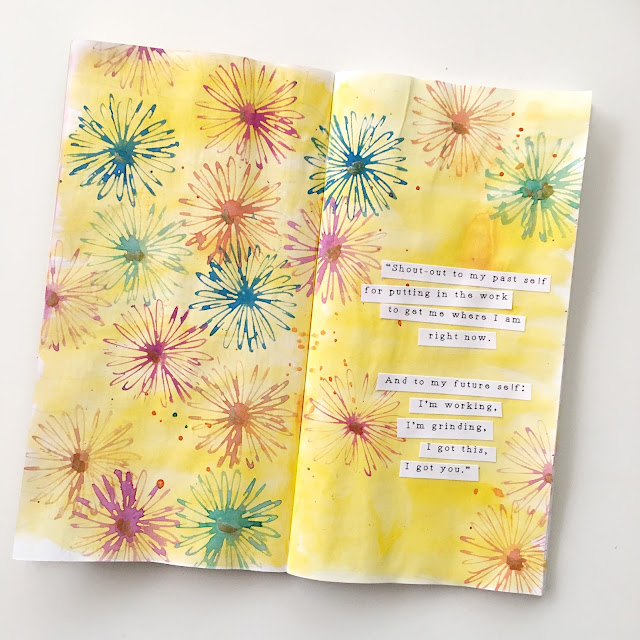 "Shout-out to my past self
for putting in the work
to get me where I am
right now.
And to my future self:
I'm working,
I'm grinding,
I got this,
I got you."